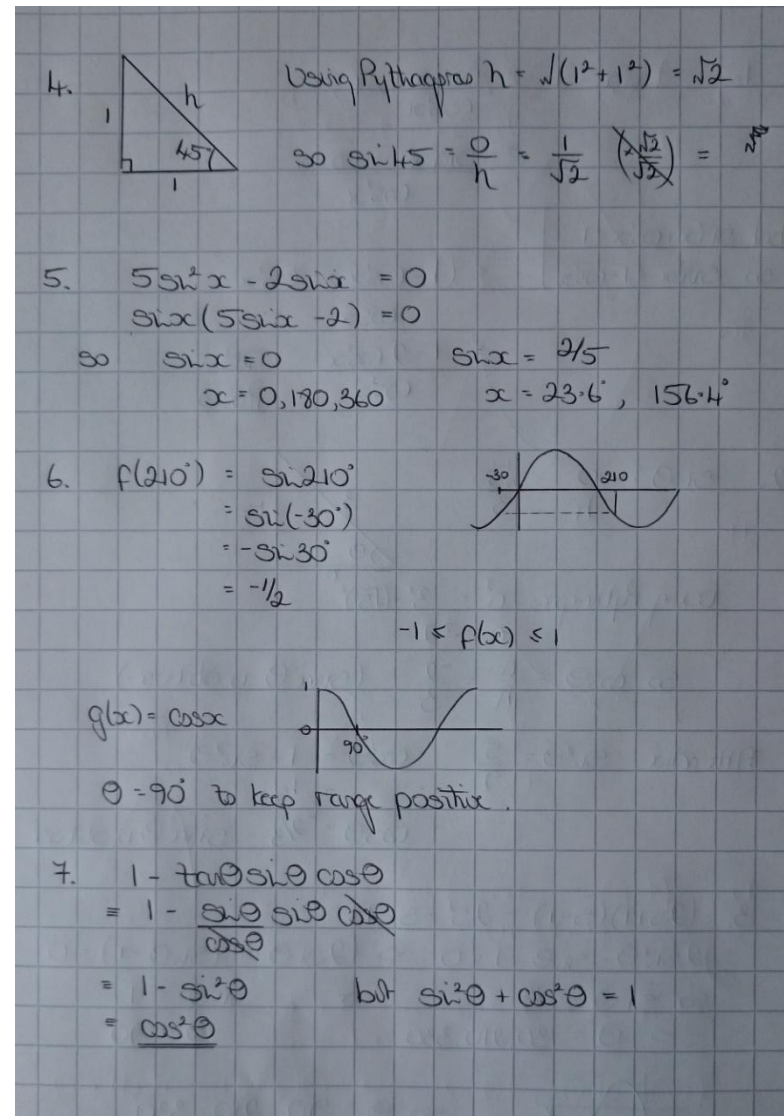 4. 1 h 45 1 Using Pythagoras h = √(1²+1²) = √2
so sin45 = o/h = 1/√2 (×√2/√2) =
5. 5sin²x - 2sinx = 0
sinx(5sinx - 2) = 0
so sinx = 0 sinx = 2/5
x = 0,180,360 x = 23.6°, 156.4°
6. f(210°) = sin210° -30 210
= sin(-30°)
= -sin30°
= -1/2
-1 ≤ f(x) ≤ 1
g(x) = cosx 1 0 90°
θ = 90° to keep range positive.
7. 1 - tanθ sinθ cosθ
≡ 1 - sinθ/cosθ sinθ cosθ
= 1 - sin²θ but sin²θ + cos²θ = 1
= cos²θ